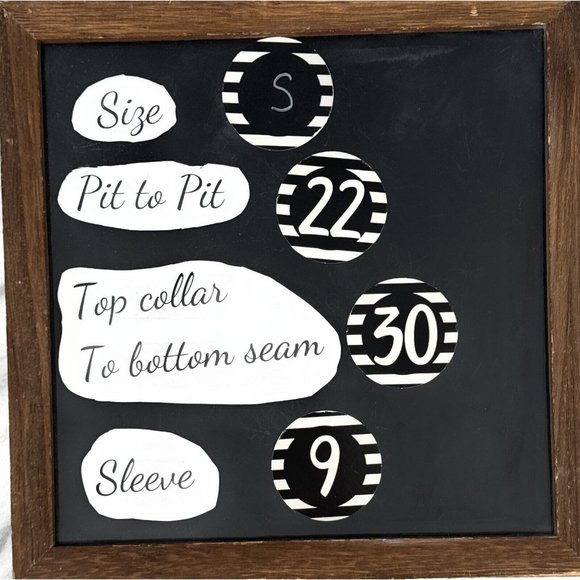 Size S
Pit to Pit 22
Top collar
To bottom seam 30
Sleeve 9